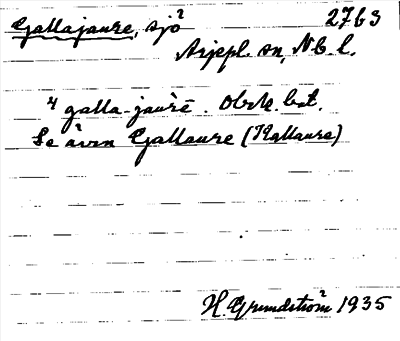 Gallajaure, sjö 2763
Arjepl. sn, Nb. l.
4 galla-jaurē. Obek. bet.
Se även Gallaure (Kallaure)
H. Grundström 1935